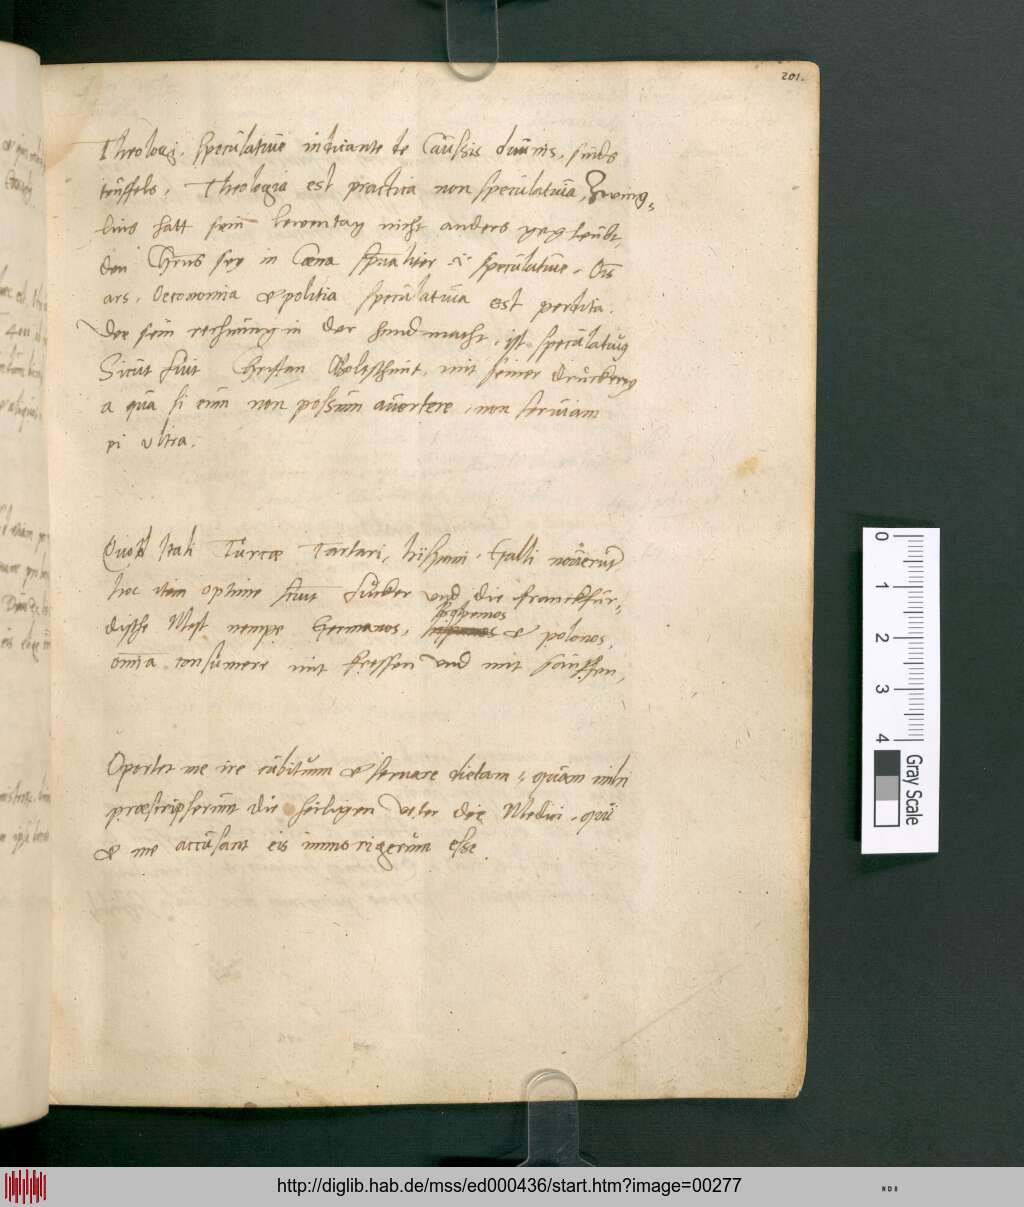 201.
Theologi, speculatiue indicante de Caussis diuinis, sinds
teuffels, Theologia est practica non speculatiua, Zwing-
lius hatt sein lebentag nicht anders gegleubt,
den Chrus sey in Cœna spualiter & speculatiue. Ois
ars, Oeconomia & politia speculatiua est perdita.
Der sein rechnung in der hund macht, ist speculatiuus
Sicut fuit Christan Goltschmit, mit seiner druckerey
a qua si eum non possum auertere, non seruiam
pi vltra.
Quod Itali Turcæ Tartari, hispani, Galli nouerunt,
hoc item optime sciunt Fucker und die franckfur-
dische Mess nempe Germanos, & polonos,
omia consumere mit fressen und mit sauffen,
Oportet me ire cubitum & seruare dietam, quam mihi
præscripserunt die heiligen veter die Medici, qui
& me accusant eis immorigerum esse
0 1 2 3 4
Gray Scale
http://diglib.hab.de/mss/ed000436/start.htm?image=00277